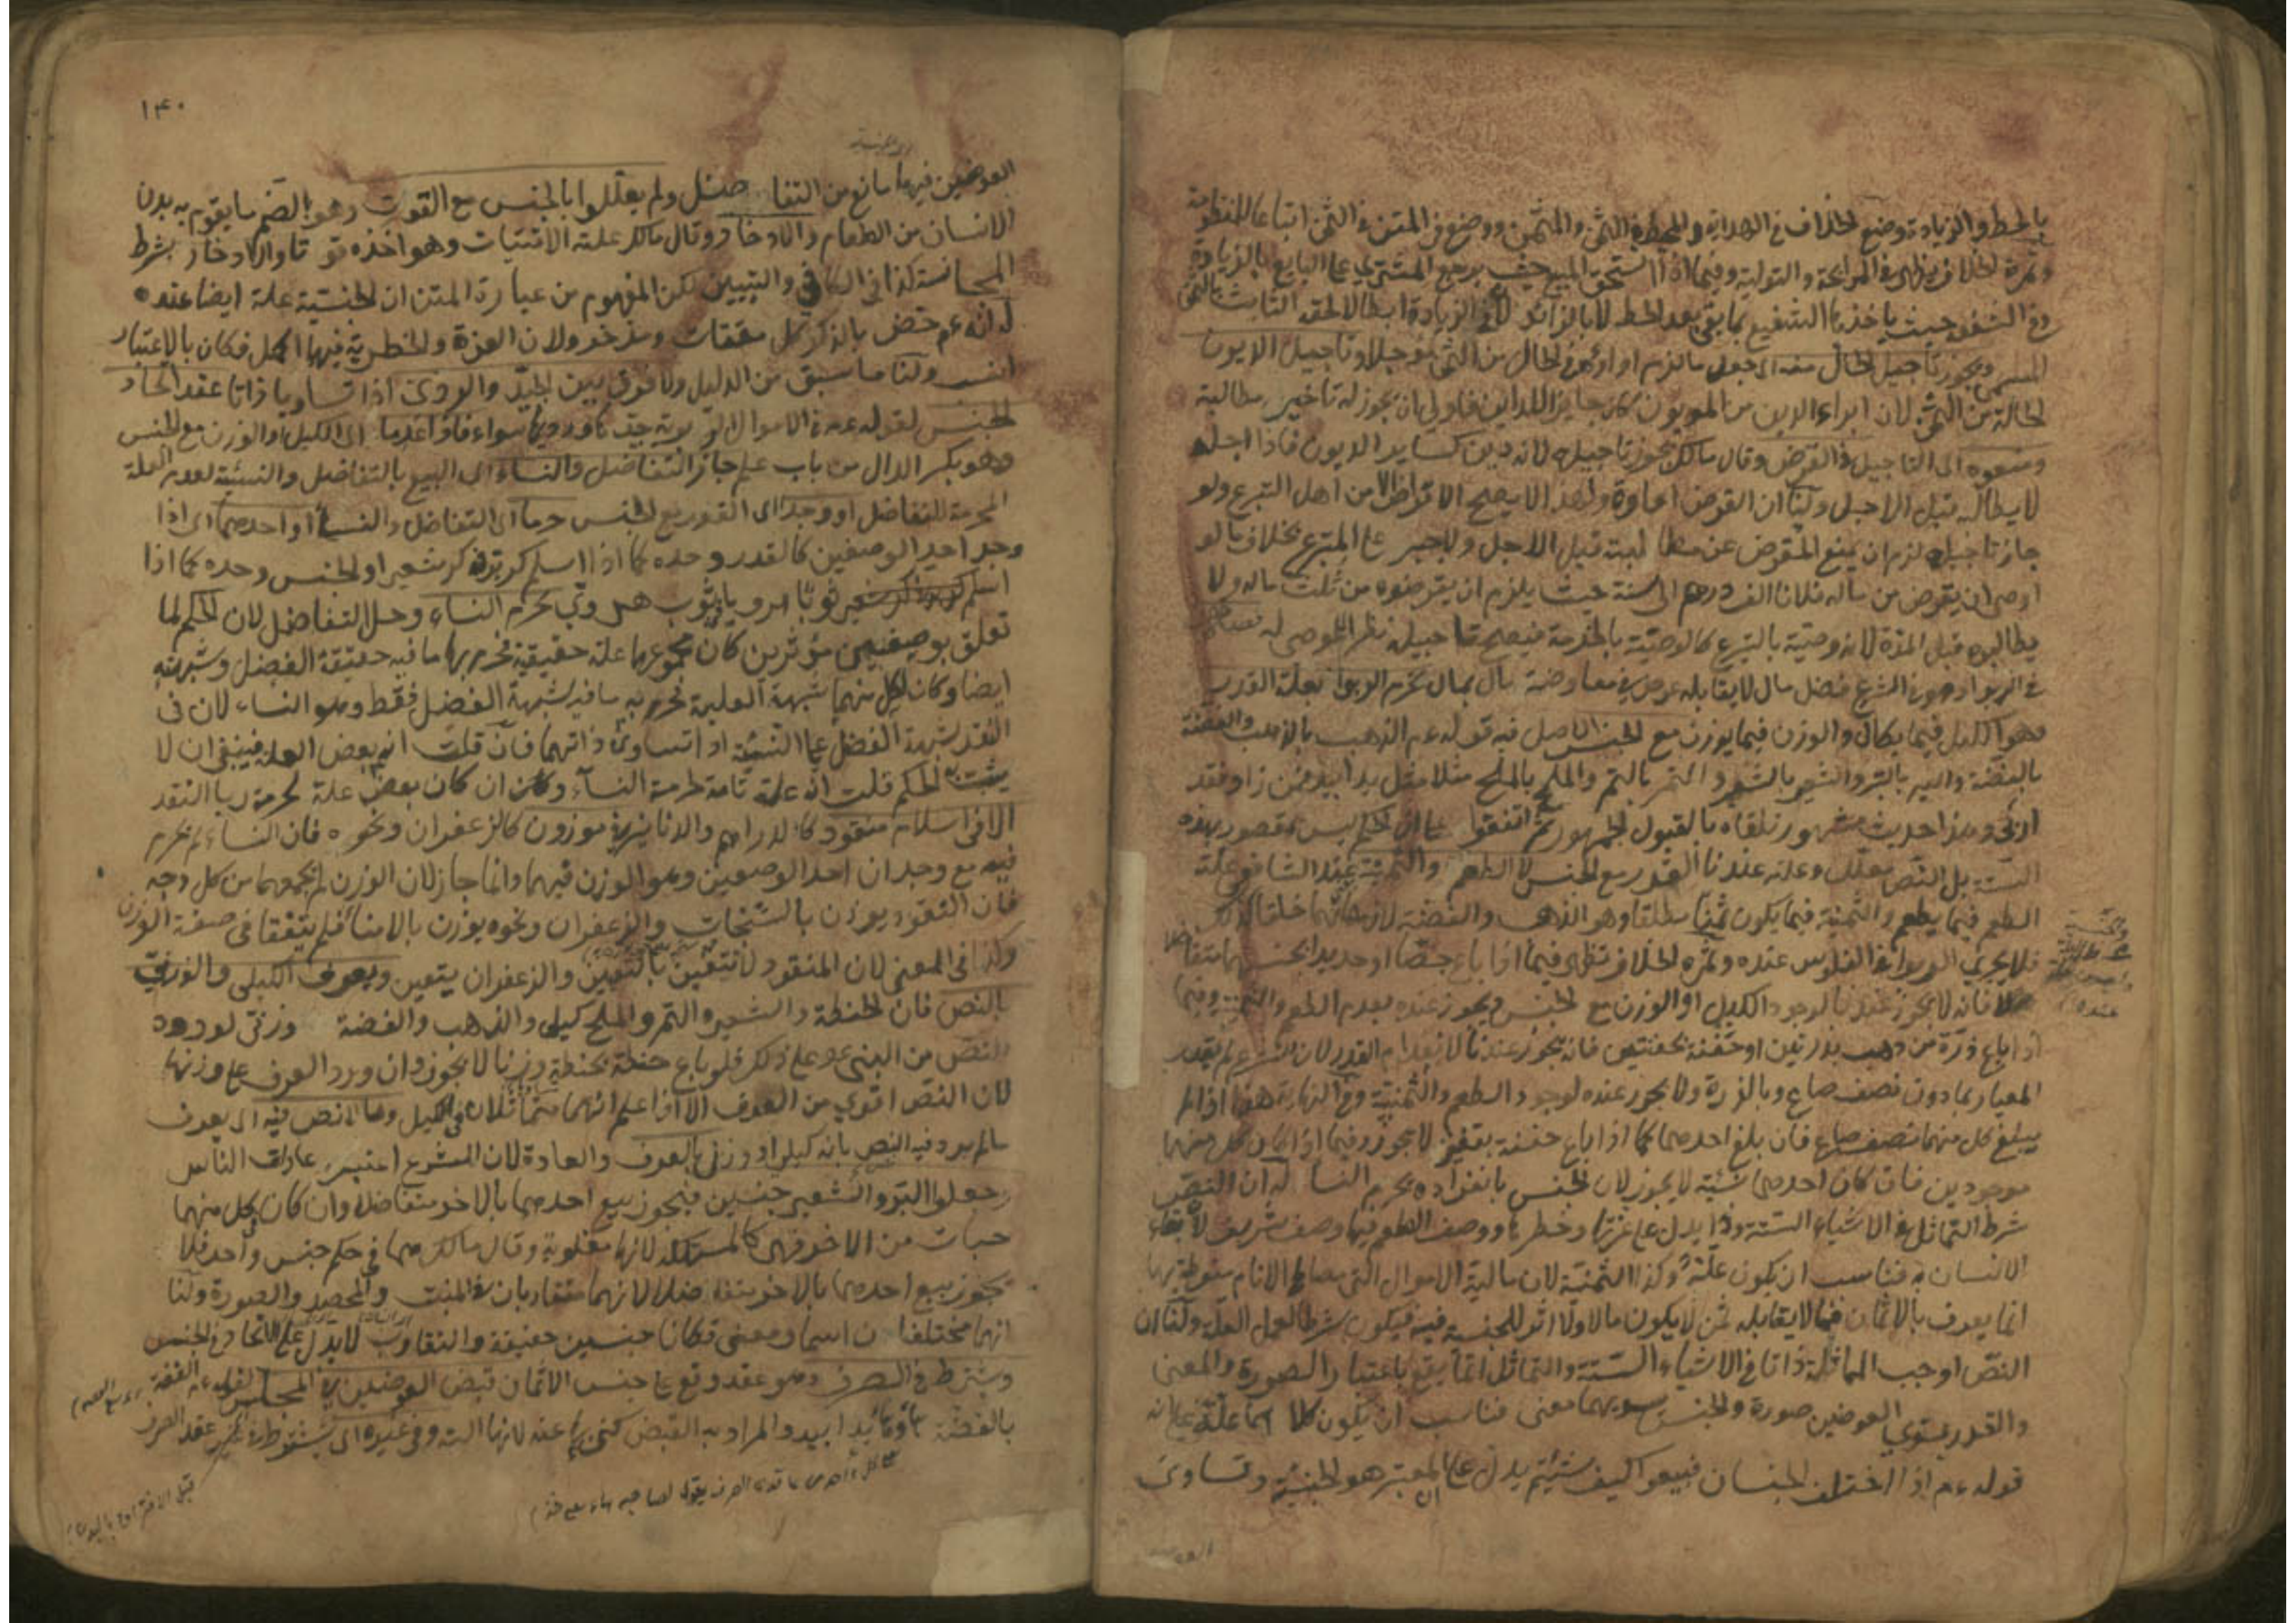 بالحط والزيادة وضع الخلاف في الهداية والمحيط في الثمن والمثمن ووضع في المتن في الثمن اتباعا للمنظومة
وثمرة الخلاف يظهر في المرابحة والتولية وفيما اذا استحق المبيع حيث يرجع المشتري على البايع بالزيادة
وفي الشفعة حيث ياخذها الشفيع بما بقي بعد الحط لا بالزائد لان في الزيادة ابطالا لحقه الثابت بالثمن
المسمى ويجوز تاجيل الحال
لحالة من الثمن لان ابراء الدين من المديون كان جايزا للداين فاولى ان يجوز له تاخير مطالبة
ومنعوه اي التاجيل في القرض وقال مالك يجوز تاجيله لانه دين كساير الديون فاذا اجله
لا يطالبه قبل الاجل ولنا ان القرض اعارة ولهذا لا يصح الاقراض الا من اهل التبرع ولو
جاز تاجيله لزم ان يمنع المقرض عن مطالبته قبل الاجل ولا جبر على المتبرع بخلاف ما لو
اوصى ان يقرض من ماله فلانا الف درهم الى سنة حيث يلزم ان يقرضوه من ثلث ماله ولا
يطالبوه قبل المدة لانه وصية بالتبرع كالوصية بالخدمة فيصح تاجيله نظرا للموصى له
في الربوا وهو في الشرع فضل مال لا يقابله عوض في معاوضة مال بمال يحرم الربوا بعلة القدر
وهو الكيل فيما يكال والوزن فيما يوزن مع الجنس الاصل فيه قوله عم الذهب بالذهب والفضة
بالفضة والبر بالبر والشعير بالشعير والتمر بالتمر والملح بالملح مثلا بمثل يدا بيد فمن زاد فقد
اربى وهذا حديث مشهور تلقاه بالقبول الجمهور ثم اتفقوا على ان الحكم ليس بمقصور بهذه
الستة بل النص معلل وعلته عندنا القدر مع الجنس لا الطعم والثمنية عند الشافعي علة
الطعم فيما يطعم والثمنية فيما يكون ثمنا مطلقا وهو الذهب والفضة لانهما خلقا لذلك
فلا يجري الربوا في الفلوس عنده وثمرة الخلاف تظهر فيما اذا باع جصا او حديدا بجنسهما متفاضلا
فانه لا يجوز عندنا لوجود الكيل او الوزن مع الجنس ويجوز عنده لعدم الطعم والثمنية وفيما
اذا باع ذرة من ذهب بذرتين او حفنة بحفنتين فانه يجوز عندنا لانعدام القدر لان الشرع لم يقدر
المعيار بما دون نصف صاع وبالذرة ولا يجوز عنده لوجود الطعم والثمنية وفي النهاية هذا اذا لم
يبلغ كل منهما نصف صاع فان بلغ احدهما كما اذا باع حفنة بقفيز لا يجوز وفيما اذا كان كل منهما
موجودين فان كان احدهما نسئة لا يجوز لان الجنس بانفراده يحرم النسا له ان النص
شرط التماثل في الاشياء الستة وذا يدل على عزتها وخطرها ووصف الطعم فيها وصف شريف لان بقاء
الانسان به فناسب ان يكون علة وكذا الثمنية لان مالية الاموال التي مصالح الانام منوطة بها
انما يعرف بالاثمان فما لا يقابله ثمن لا يكون مالا ولا اثر للجنسية فيه فيكون شرطا لعمل العلة ولنا ان
النص اوجب المماثلة ذاتا في الاشياء الستة والتماثل انما يقع باعتبار الصورة والمعنى
والقدر يسوي العوضين صورة والجنس يسويهما معنى فناسب ان يكون كلاهما علة على انه
قوله عم اذا اختلف الجنسان فبيعوا كيف شئتم يدل على ان المعتبر هو الجنسية وتساوي
١٤٠
العوضين فيهما مانع من التفاضل ولم يعللوا بالجنس مع القوت وهو بالضم ما يقوم به بدن
الانسان من الطعام والادخار وقال مالك علته الاقتيات وهو اخذه قوتا والادخار بشرط
المجانسة كذا في الكافي والتبيين لكن المفهوم من عبارة المتن ان الجنسية علة ايضا عنده
له انه عم خص بالذكر كل مقتات ومدخر ولان العزة والخطرية فيها اكمل فكان بالاعتبار
انسب ولنا ما سبق من الدليل ولا فرق بين الجيد والردي اذا تساويا ذاتا عند اتحاد
الجنس لقوله عم في الاموال الربوية جيدها ورديها سواء فاذا عدما اي الكيل او الوزن مع الجنس
وهو بكسر الدال من باب علم جاز التفاضل والنساء اي البيع بالتفاضل والنسيئة لعدم العلة
المحرمة للتفاضل او وجدا اي القدر مع الجنس حرما اي التفاضل والنسأ او احدهما اي اذا
وجد احد الوصفين كالقدر وحده كما اذا اسلم كر بر في كر شعير او الجنس وحده كما اذا
اسلم ثوبا هرويا بثوب هروي يحرم النساء وحل التفاضل لان الحكم لما
تعلق بوصفين مؤثرين كان مجموعهما علة حقيقية فحرم بها ما فيه حقيقة الفضل وشبهته
ايضا وكان لكل منهما شبهة العلية فحرم به ما فيه شبهة الفضل فقط وهو النساء لان في
النقد شبهة الفضل على النسيئة اذا تساوى ذاتهما فان قلت انه بعض العلة فينبغي ان لا
يثبت به الحكم قلت انه علة تامة لحرمة النسآء وان كان بعض علة لحرمة ربا النقد
الا في اسلام منقود كالدراهم والدنانير في موزون كالزعفران ونحوه فان النساء لم يحرم
فيه مع وجدان احد الوصفين وهو الوزن فيهما وانما جاز لان الوزن لم يجمعهما من كل وجه
فان النقود يوزن بالسنجات والزعفران ونحوه يوزن بالامنا فلم يتفقا في صفة الوزن
وكذا في المعنى لان المنقود لا تتعين بالتعيين والزعفران يتعين ويعرف الكيلي والوزني
بالنص فان الحنطة والشعير والتمر والملح كيلي والذهب والفضة وزني لورود
النص من النبي عم على ذلك فلو باع حنطة بحنطة وزنا لا يجوز وان ورد العرف على وزنها
لان النص اقوى من العرف الا اذا علم انهما متماثلان في الكيل وما لا نص فيه اي يعرف
ما لم يرد فيه النص بانه كيلي او وزني بالعرف والعادة لان الشرع اعتبر عادات الناس
وجعلوا البر والشعير جنسين فيجوز بيع احدهما بالاخر متفاضلا وان كان في كل منهما
حبات من الاخر فهي كالمستهلك لانها مغلوبة وقال مالك هما في حكم جنس واحد فلا
يجوز بيع احدهما بالاخر متفاضلا لانهما متقاربان في المنبت والمحصد والصورة ولنا
انهما مختلفان اسما ومعنى فكانا جنسين حقيقة والتقارب لا يدل على الاتحاد في الجنس
ويشترط في الصرف وهو عقد وقع على جنس الاثمان قبض العوضين في المجلس لقوله عم الفضة
بالفضة هاء وهاء يدا بيد والمراد به القبض كنى بها عنه لانها الته وفي غيره اي يشترط في غير عقد الصرف